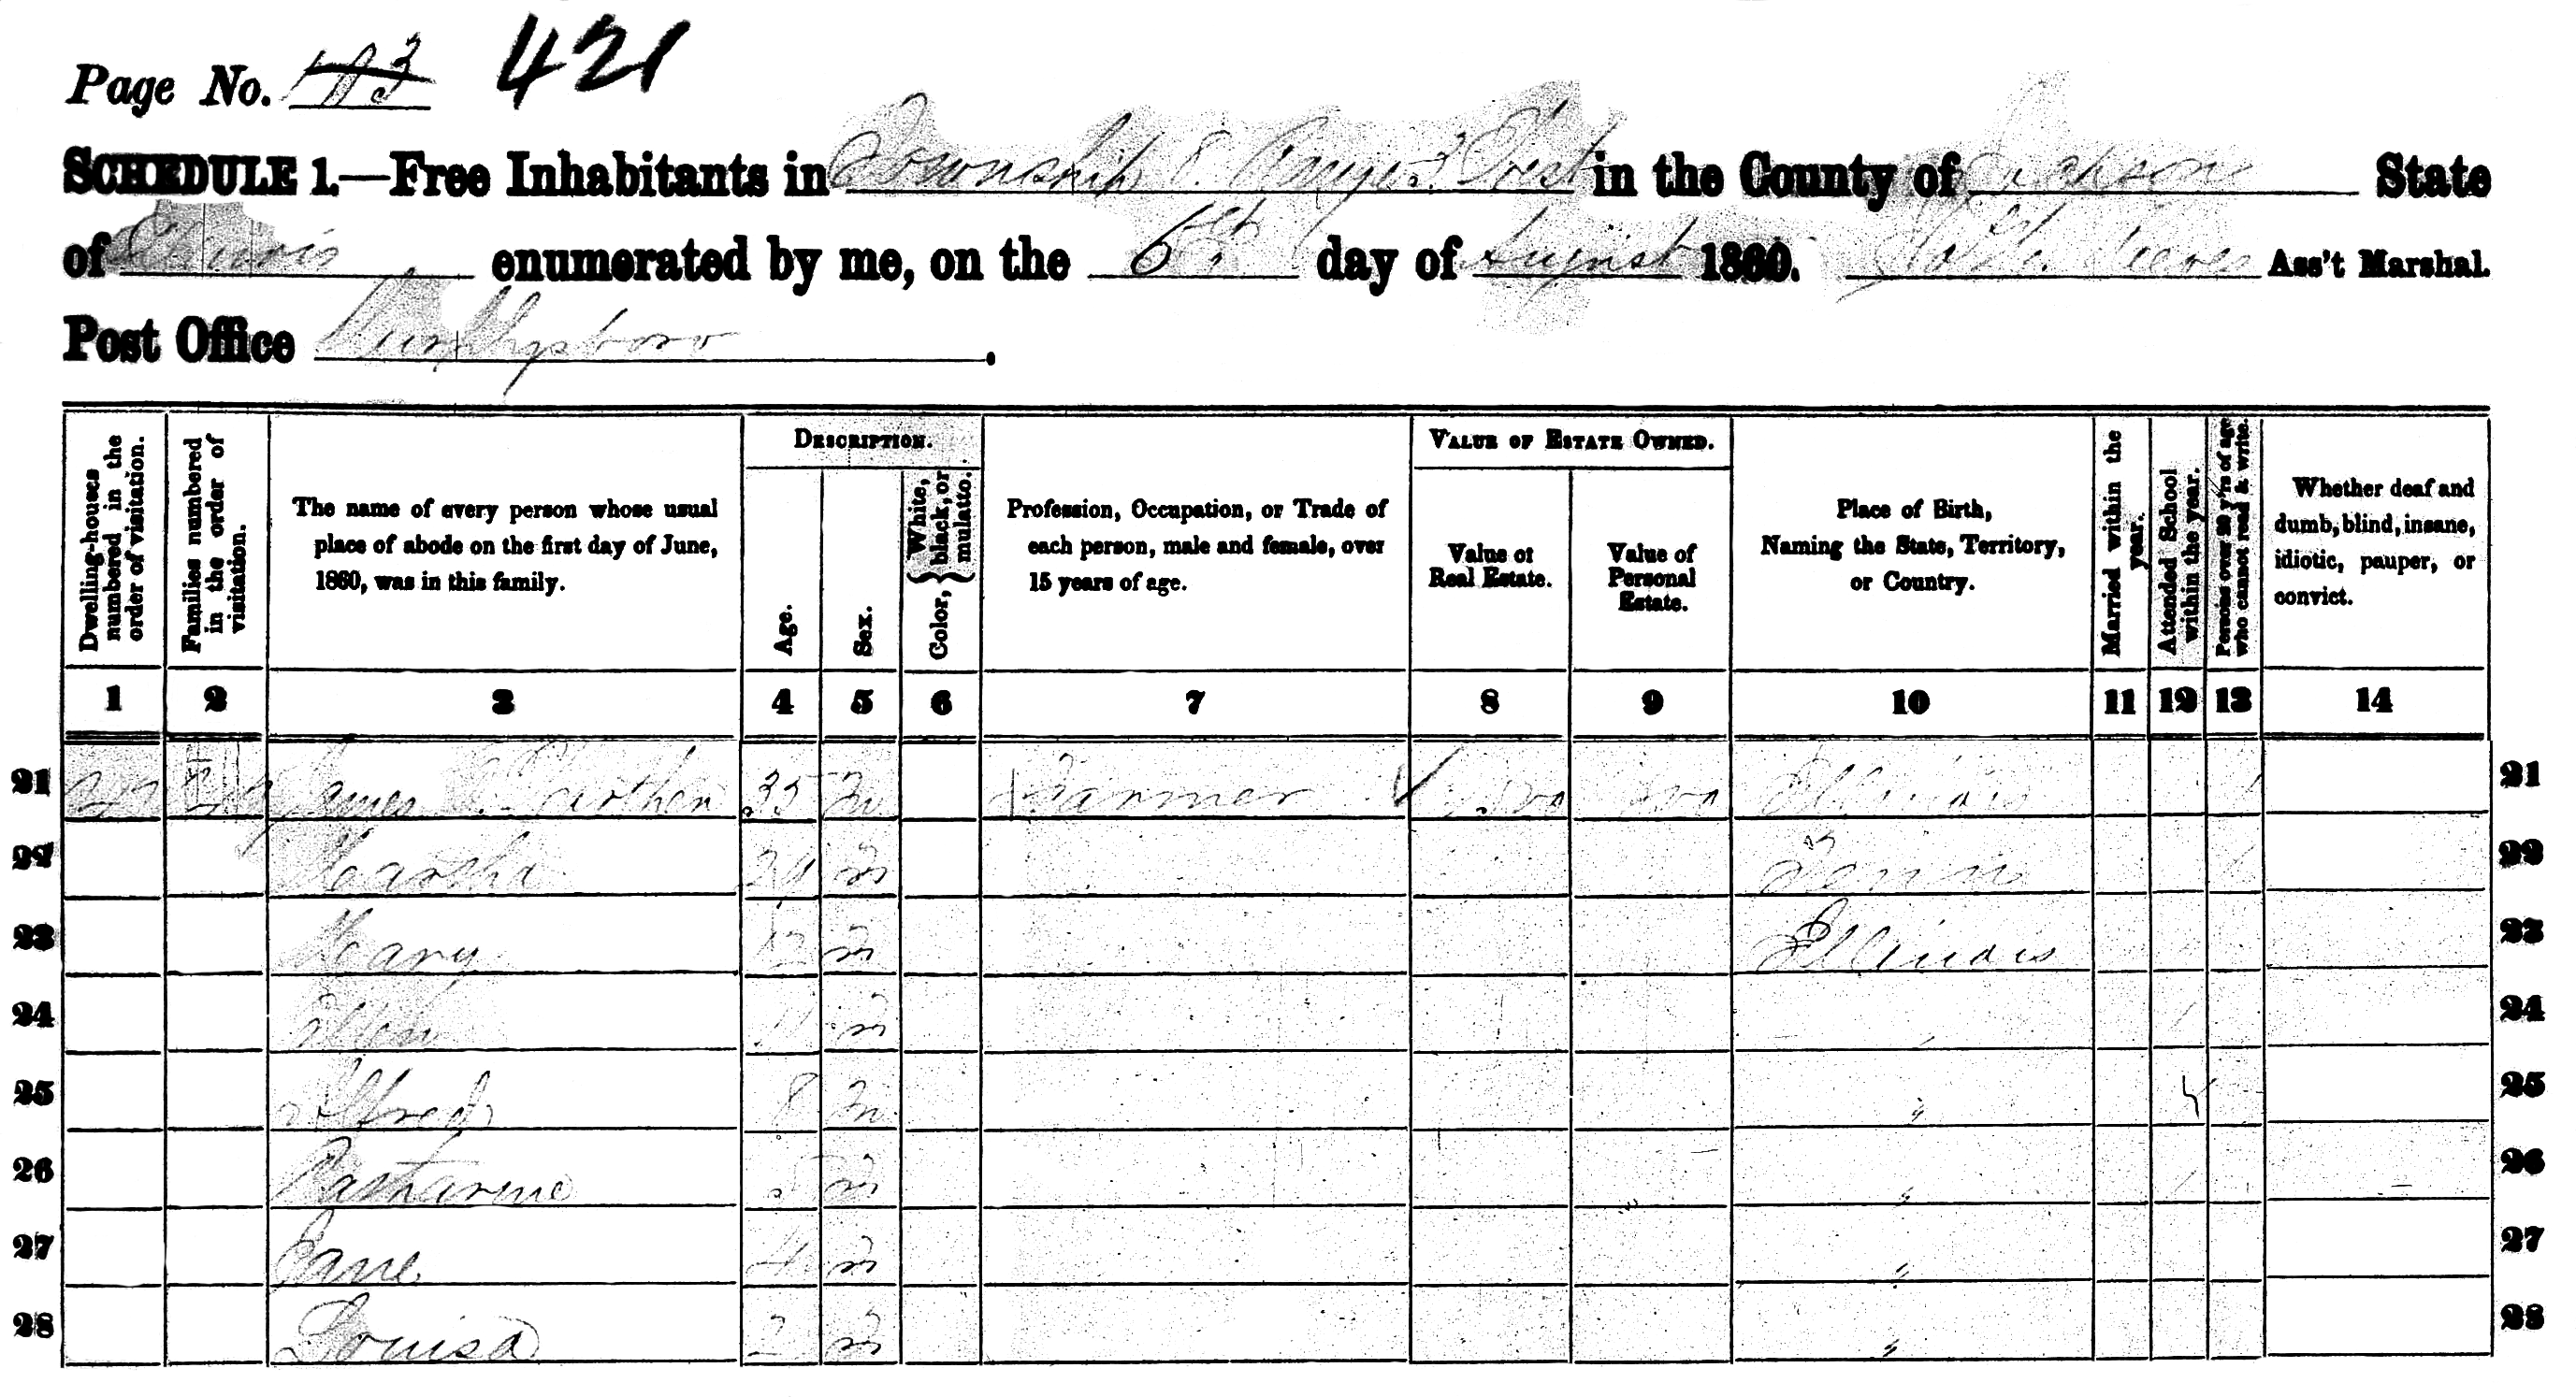 Page No. 103 421
SCHEDULE 1.—Free Inhabitants in Township 8 Range 3 West in the County of Jackson State
of Illinois enumerated by me, on the 6th day of August 1860. Ass't Marshal.
Post Office Murphysboro.
Dwelling-houses numbered in the order of visitation.
Families numbered in the order of visitation.
The name of every person whose usual place of abode on the first day of June, 1860, was in this family.
DESCRIPTION.
Age.
Sex.
Color, { White, black, or mulatto.
Profession, Occupation, or Trade of each person, male and female, over 15 years of age.
VALUE OF ESTATE OWNED.
Value of Real Estate.
Value of Personal Estate.
Place of Birth, Naming the State, Territory, or Country.
Married within the year.
Attended School within the year.
Persons over 20 y'rs of age who cannot read & write.
Whether deaf and dumb, blind, insane, idiotic, pauper, or convict.
1 2 3 4 5 6 7 8 9 10 11 12 13 14
21 James 35 m Farmer Illinois 21
22 Martha m Tenn 22
23 Mary 12 m Illinois 23
24 m " 24
25 Alfred 8 m " 25
26 Catharine 5 m " 26
27 Jane 4 m " 27
28 Louisa 2 m " 28